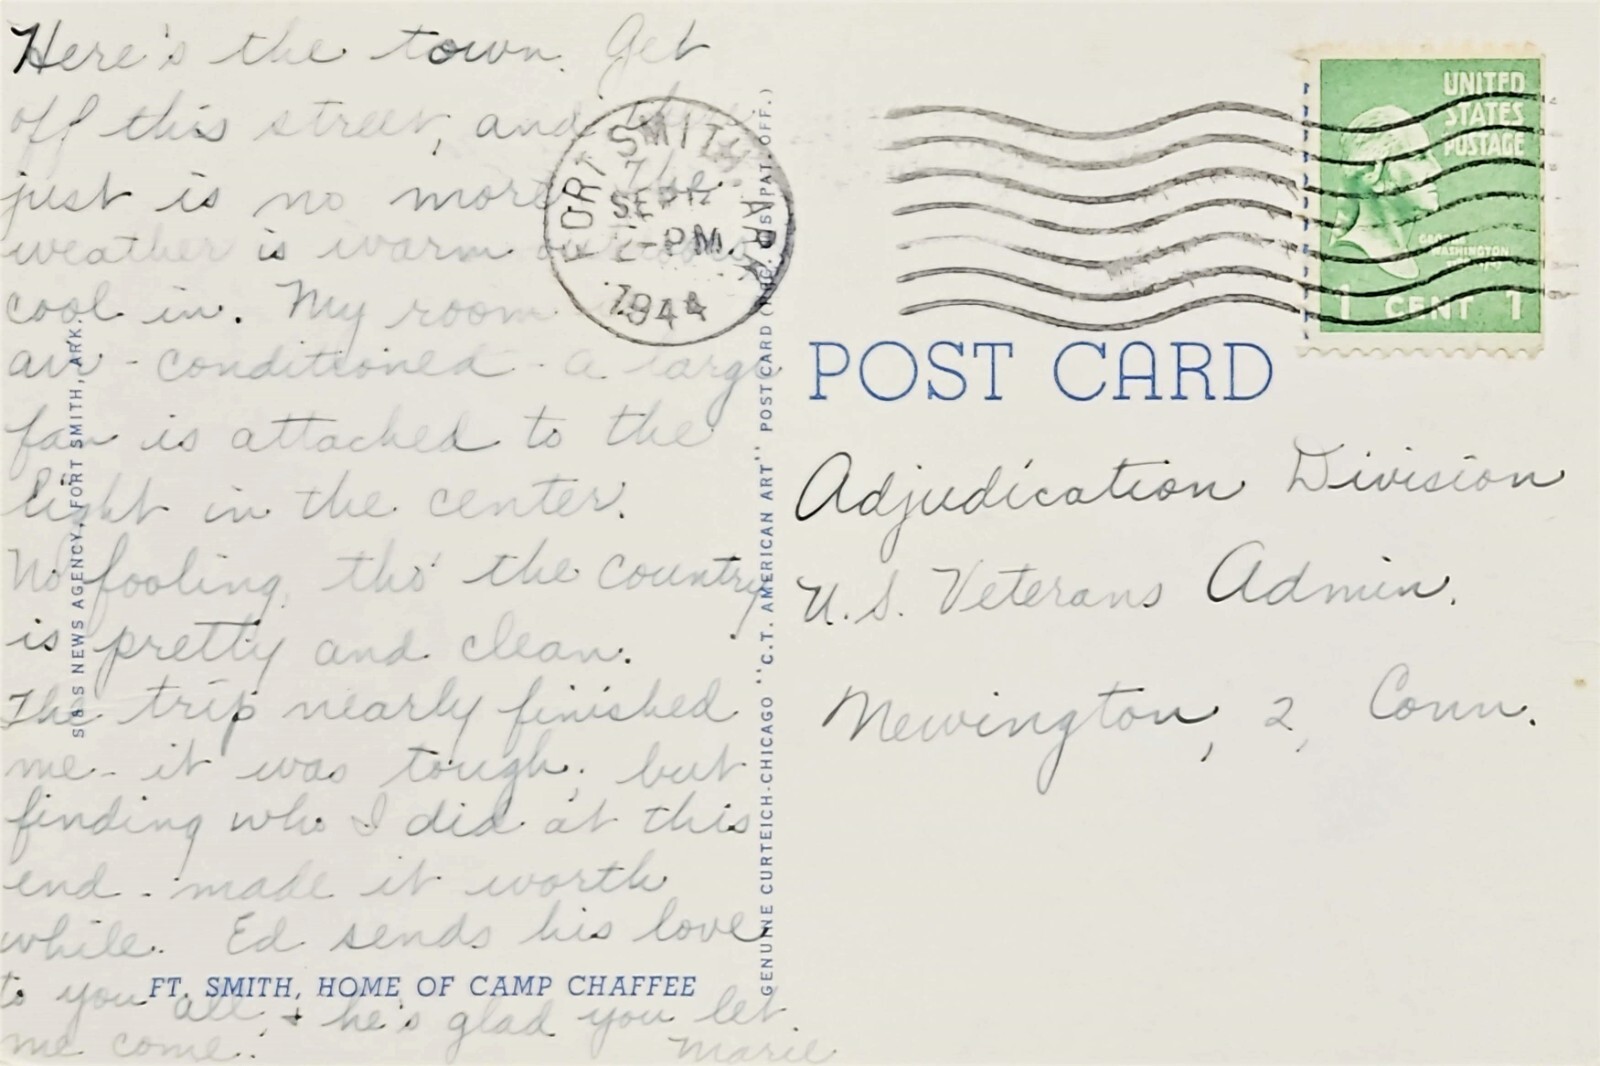 Here's the town. Get
off this street, and
just is no more. The
weather is warm
cool in. My room
air-conditioned - a large
fan is attached to the
light in the center.
No fooling, tho' the country
is pretty and clean.
The trip nearly finished
me - it was tough, but
finding who I did at this
end - made it worth
while. Ed sends his love
to you all, + he's glad you let
me come!
Marie
FT. SMITH, HOME OF CAMP CHAFFEE
NEWS AGENCY, FORT SMITH, ARK.
GENUINE CURTEICH-CHICAGO "C.T. AMERICAN ART" POST CARD (REG. U.S. PAT. OFF.)
FORT SMITH
ARK
SEP 12
-PM
1944
UNITED
STATES
POSTAGE
GEORGE
WASHINGTON
1 CENT 1
POST CARD
Adjudication Division
U.S. Veterans Admin.
Newington, 2, Conn.